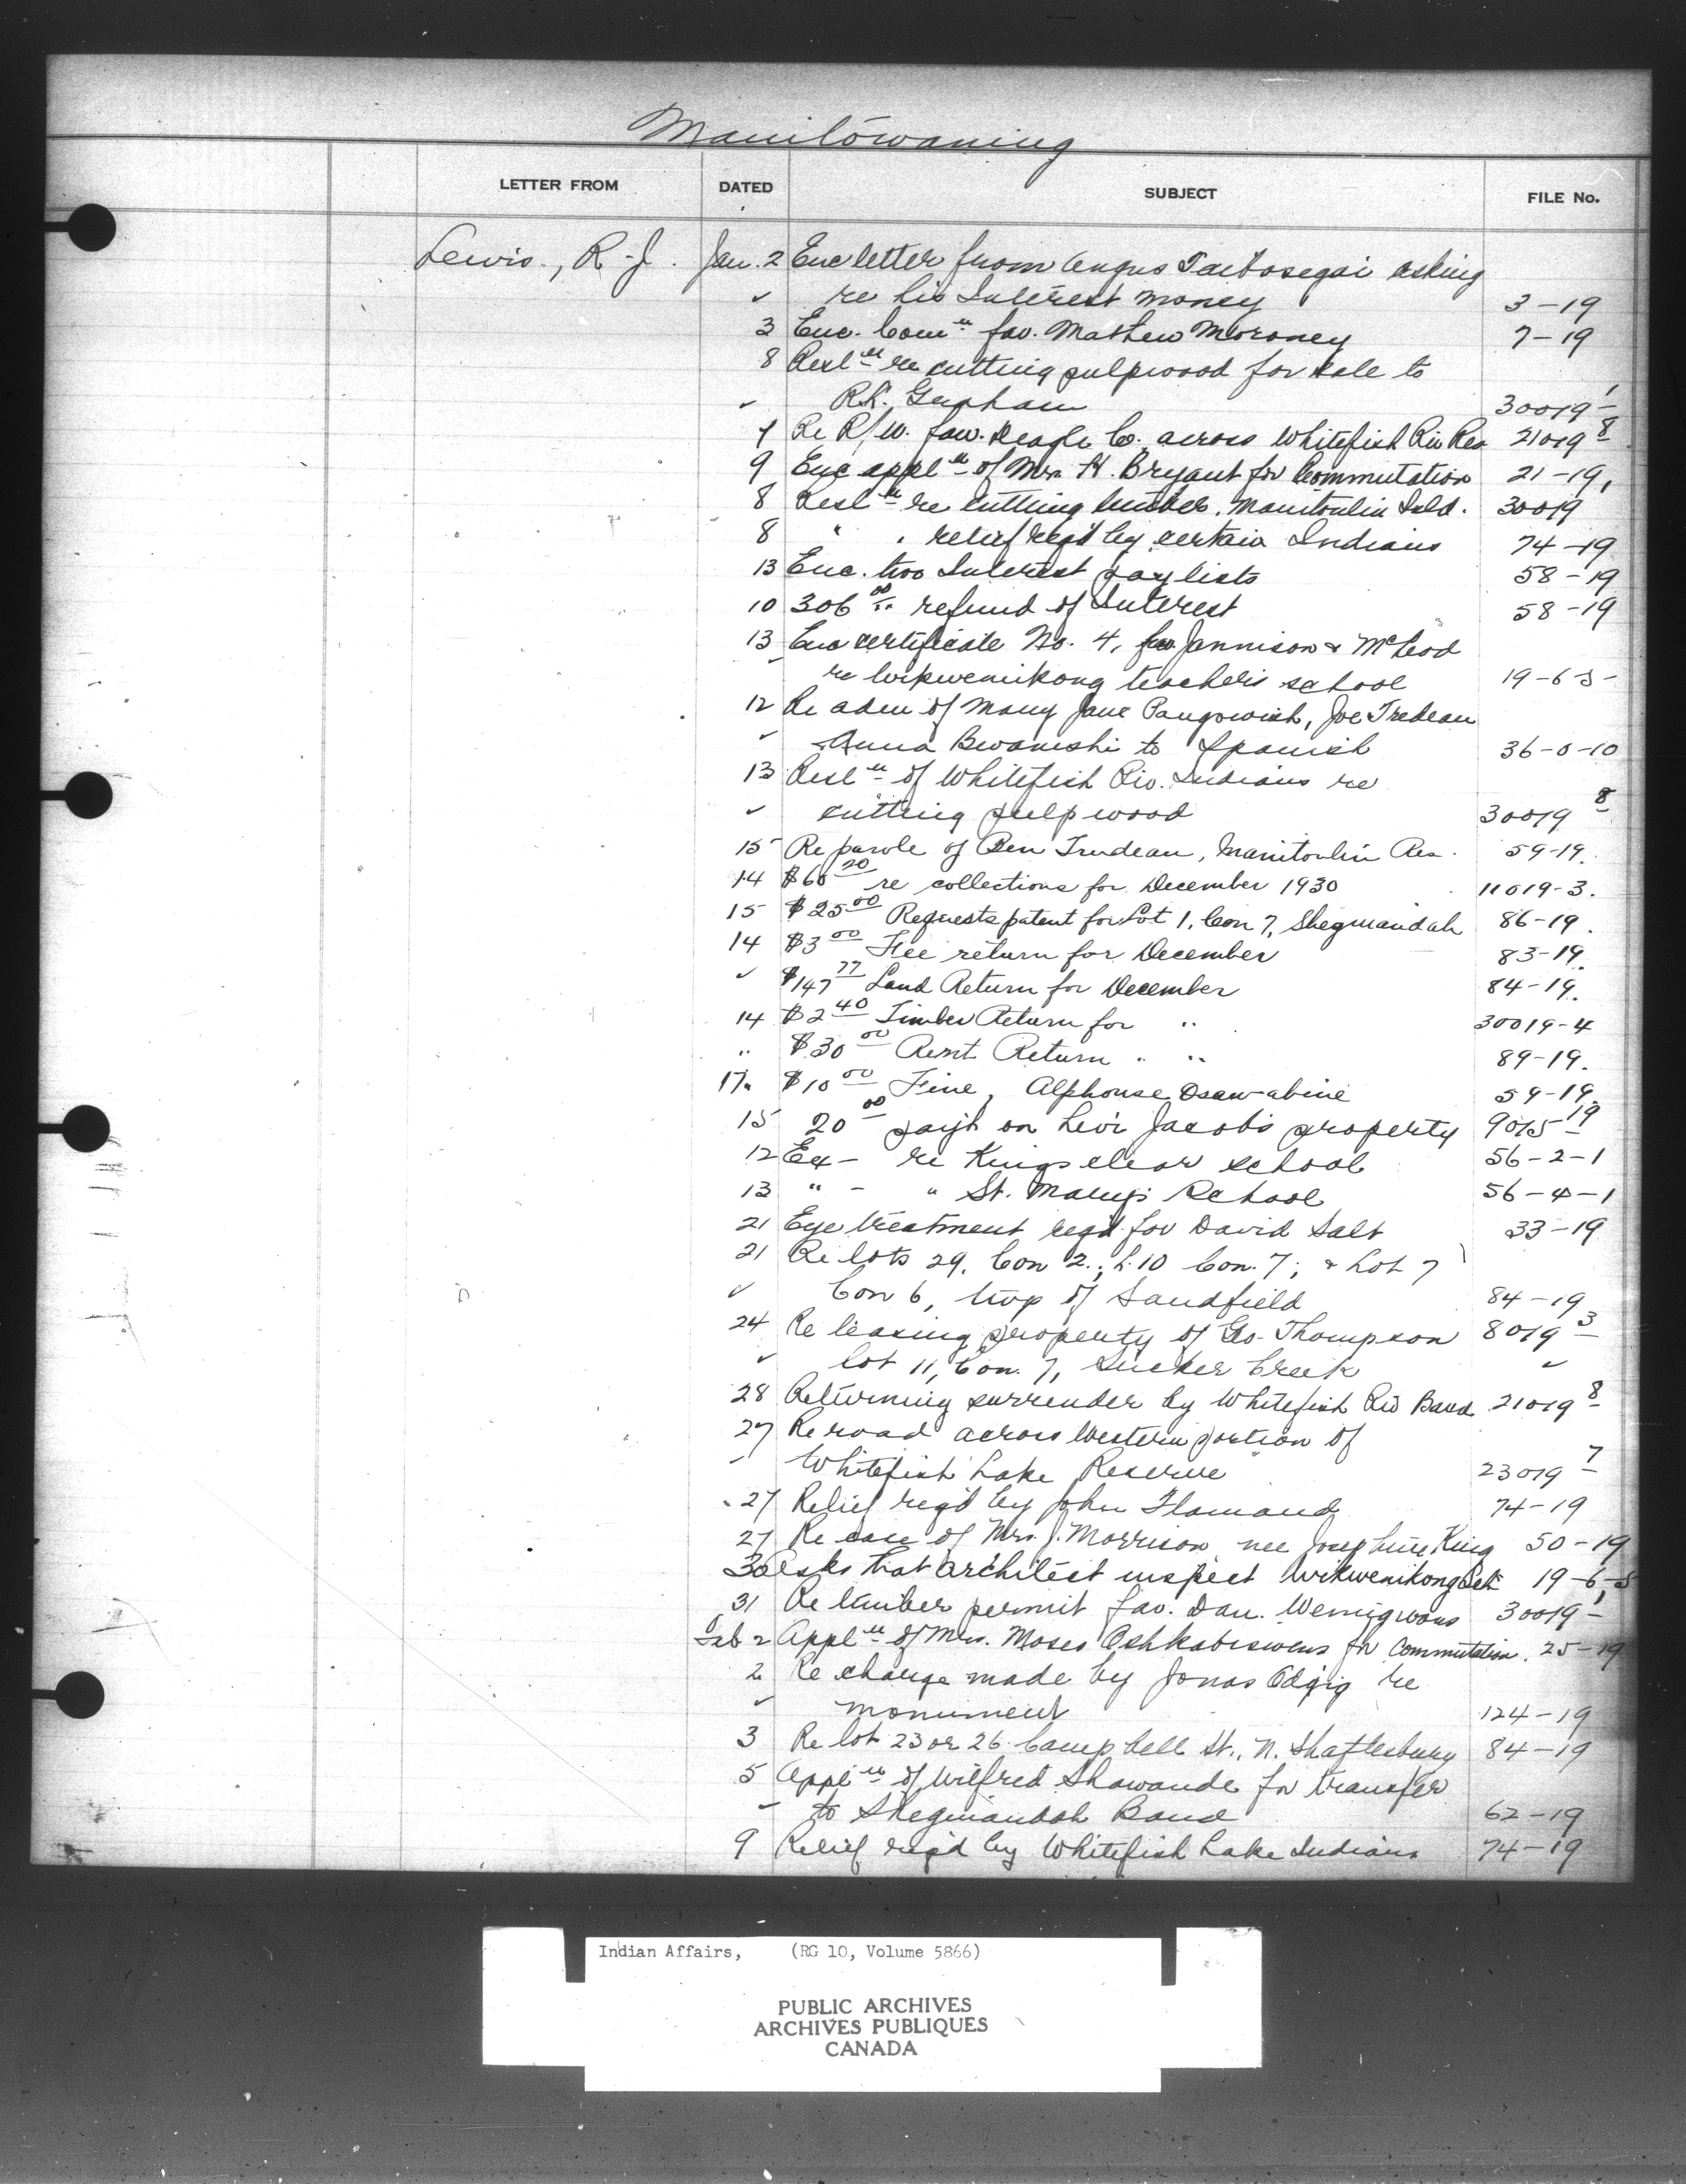 Manitowaning
LETTER FROM DATED SUBJECT FILE No.
Lewis, R. J. Jan. 2 Enc letter from Angus Taibosegai asking
✓ re his Interest money 3-19
3 Enc. Com^n fav. Mathew Moroney 7-19
8 Resl^n re cutting pulpwood for sale to
✓ R.R. Graham 30019-1
7 Re R/W. fav. Deagle Co. across Whitefish Riv Res 21019-8
9 Enc appl^n of Mrs. H. Bryant for Commutation 21-19
8 Resl^n re cutting timber, Manitoulin Isld. 30019
8 " " relief req'd by certain Indians 74-19
13 Enc. two Interest pay lists 58-19
10 306.00 refund of Interest 58-19
13 Enc certificate No. 4, fav. Jannison & McLeod
re Wikwemikong teacher's school 19-6-5
12 Re adm of Mary Jane Pangowish, Joe Tredeau
✓ Anna Bwanishi to Spanish 36-0-10
13 Resl^n of Whitefish Riv. Indians re
✓ cutting pulpwood 30019 8
15 Re parole of Ben Trudeau, Manitoulin Res. 59-19.
14 $60 20 re collections for December 1930 11019-3.
15 $25 00 Requests patent for Lot 1, Con 7, Shegmandah 86-19.
14 $3 00 Fee return for December 83-19.
✓ $147 77 Land Return for December 84-19.
14 $2 40 Timber Return for " 30019-4
" $30 00 Rent Return " " 89-19.
17. $10 00 Fine, Alphonse Osaw-abine 59-19.
15 20 00 paym't on Levi Jacobs property 9015-19
12 Ex - re Kingsclear school 56-2-1
13 " - " St. Mary's School 56-4-1
21 Eye treatment req'd for David Salt 33-19
21 Re lots 29, Con 2.; L.10 Con. 7; & Lot 7
✓ Con 6, twp of Sandfield 84-19
24 Re leasing property of Geo. Thompson 8019 3
✓ lot 11, Con. 7, Sucker Creek ✓
28 Returning surrender by Whitefish Riv Band 21019 8
27 Re road across Western portion of
✓ Whitefish Lake Reserve 23019 7
27 Relief req'd by John Flamand 74-19
27 Re case of Mrs. J. Morrison nee Josephine King 50-19
30 Asks that architect inspect Wikwemikong Sch 19-6-5
31 Re timber permit fav. Dan. Wemigwans 30019-1
Feb 2 Appl^n of Mrs. Moses Oshkabiswens for Commutation. 25-19
2 Re charge made by Jonas Odjig re
✓ monument 124-19
3 Re lot 23 or 26 Campbell St., N. Shaftesbury 84-19
5 Appl^n of Wilfred Shawande for transfer
✓ to Shegmandah Band 62-19
9 Relief req'd by Whitefish Lake Indians 74-19
Indian Affairs, (RG 10, Volume 5866)
PUBLIC ARCHIVES
ARCHIVES PUBLIQUES
CANADA